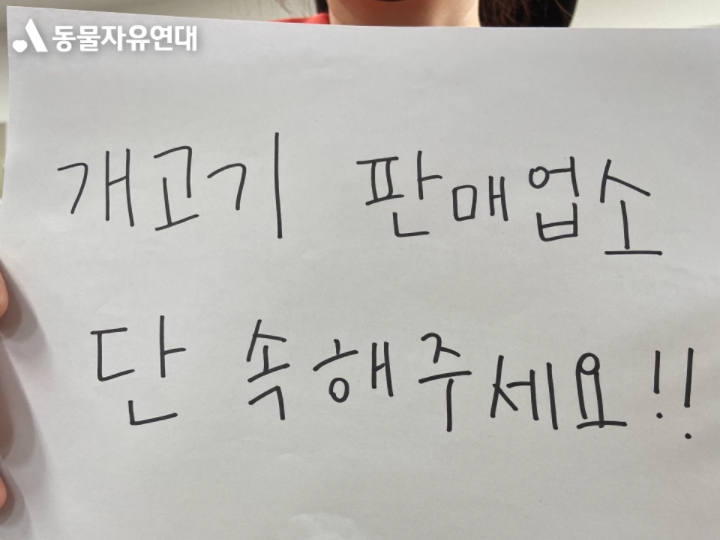 동물자유연대
개고기 판매업소
단속해주세요!!